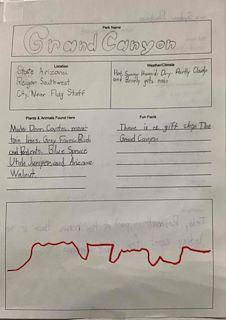 Park Name
Grand Canyon
Location
State Arizona
Region Southwest
City Near Flag Staff
Weather/Climate
Hot, Sunny Humid, Dry. Partly Cloudy
and Barely gets rain
Plants & Animals Found Here
Mule Deer, Coyotes, moun-
tain lions, Gray Foxes, Birds
and Rodents. Blue Spruce
Utah Juniper, and Arizona
Walnut.
Fun Facts
There is no gift shop The
Grand Canyon